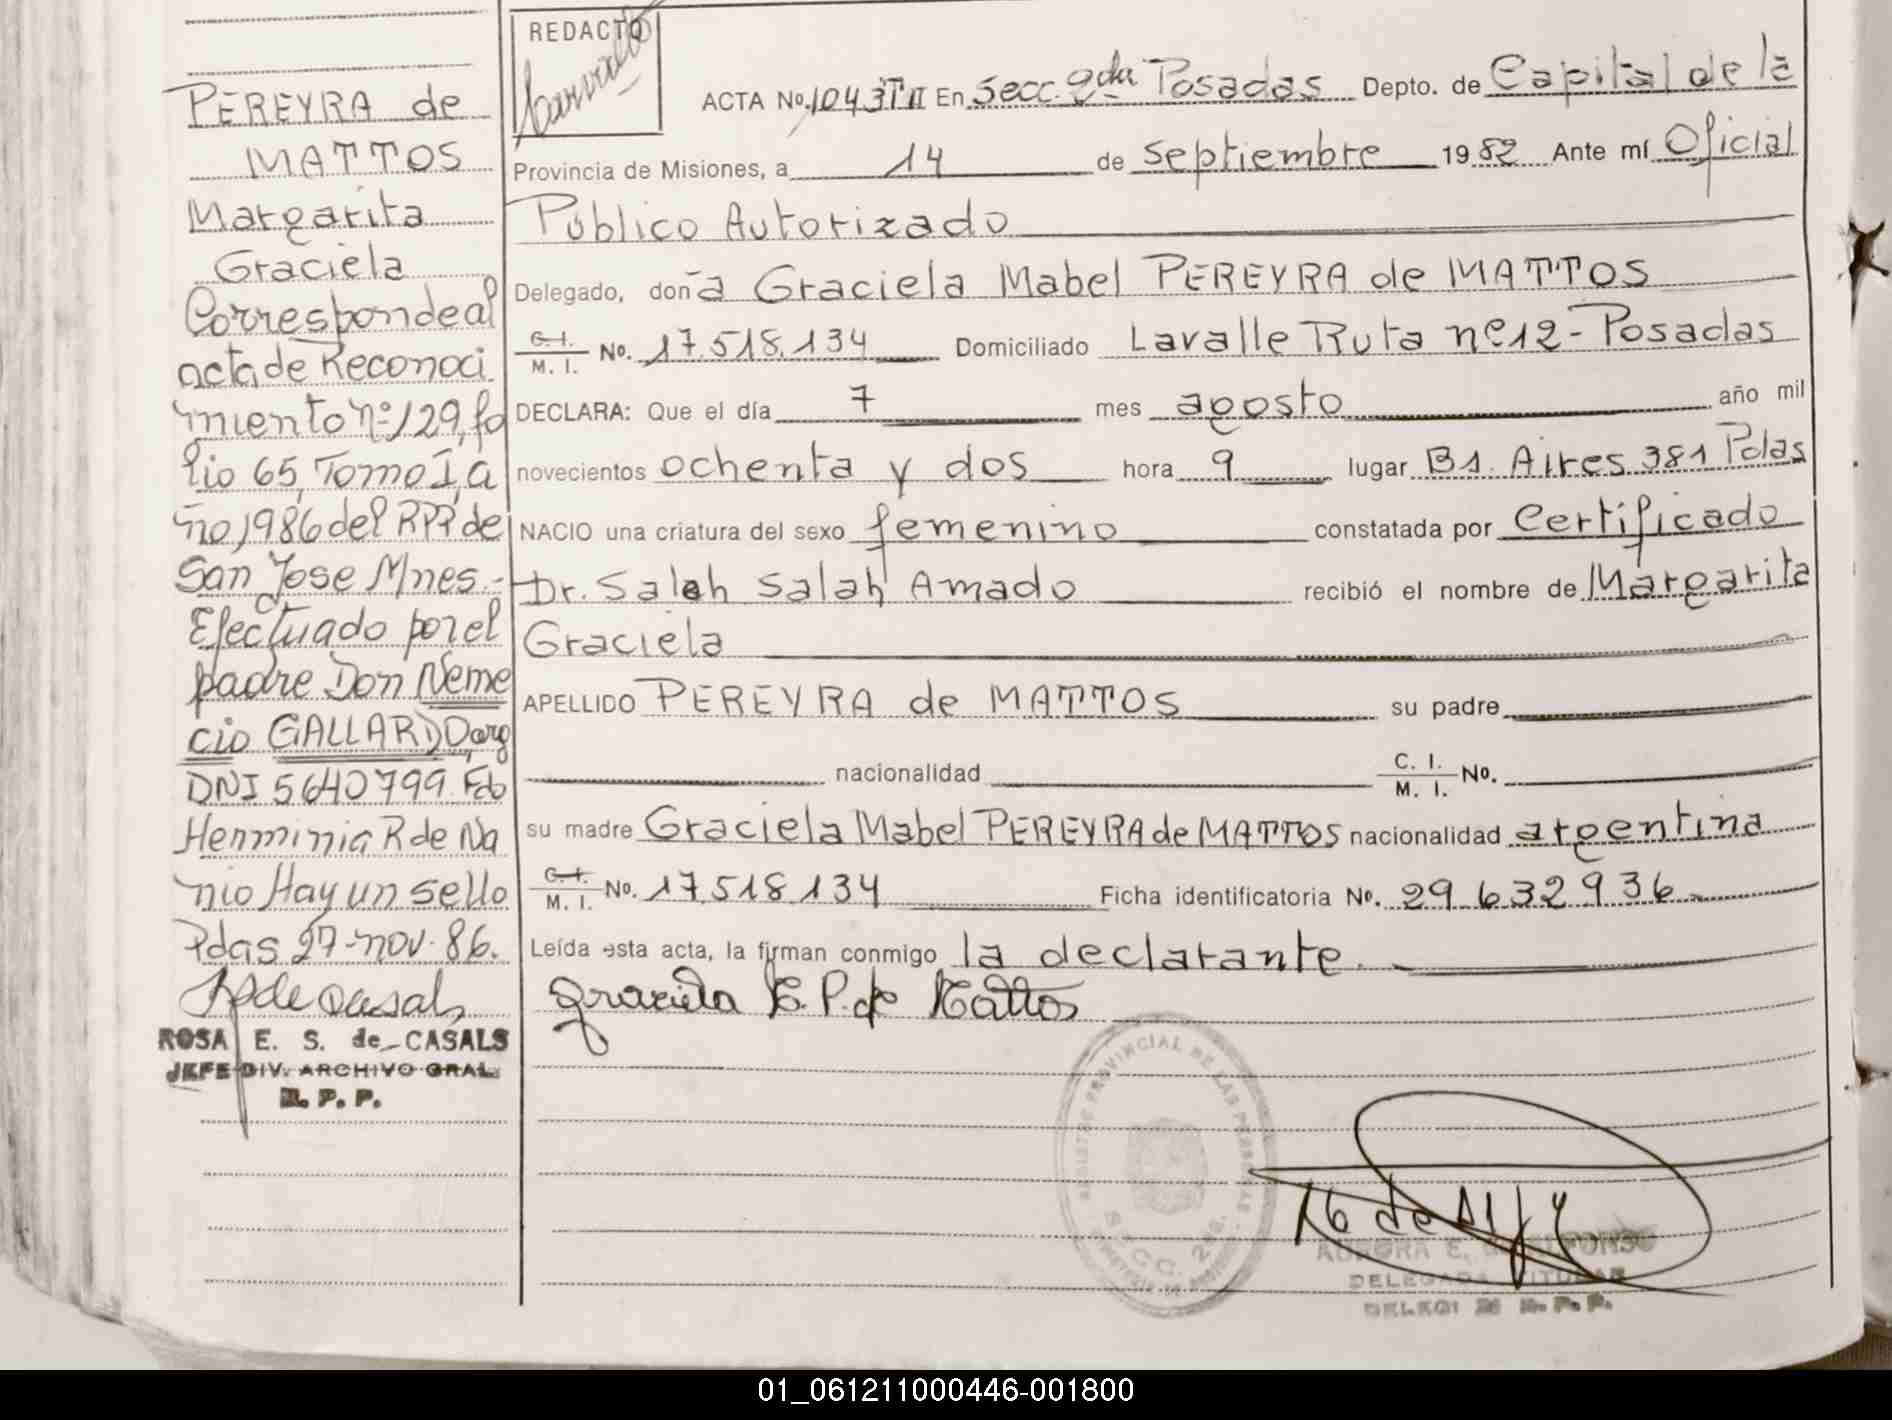 PEREYRA de
MATTOS
Margarita
Graciela
Corresponde al
acta de Reconoci
miento nº 129, fo
lio 65, Tomo I, a
ño, 1986 del RPP de
San Jose Mnes.-
Efectuado por el
padre Don Neme
cio GALLARDO arg
DNI 5640799 Fdo
Herminia R de Na
nio Hay un sello
Pdas 27-nov. 86.
R S de Casals
ROSA E. S. de CASALS
JEFE DIV. ARCHIVO GRAL.
R. P. P.
REDACTO
ACTA No. 1043 T II En Secc. 2da Posadas Depto. de Capital de la
Provincia de Misiones, a 14 de septiembre 1982 Ante mí Oficial
Público Autorizado
Delegado, doña Graciela Mabel PEREYRA de MATTOS
C. I. M. I. No. 17.518.134 Domiciliado Lavalle Ruta nº12-Posadas
DECLARA: Que el día 7 mes agosto año mil
novecientos ochenta y dos hora 9 lugar Bs. Aires 381 Pdas
NACIO una criatura del sexo femenino constatada por Certificado
Dr. Saleh Salah Amado recibió el nombre de Margarita
Graciela
APELLIDO PEREYRA de MATTOS su padre
nacionalidad C. I. M. I. No.
su madre Graciela Mabel PEREYRA de MATTOS nacionalidad argentina
C. I. M. I. No. 17.518.134 Ficha identificatoria No. 29.632.936
Leída esta acta, la firman conmigo la declarante.
Graciela M. P. de Mattos
REGISTRO PROVINCIAL DE LAS PERSONAS
SECC. 2da.
AURORA E. ALFONSO
DELEGADA TITULAR
R. P. P.
01_061211000446-001800